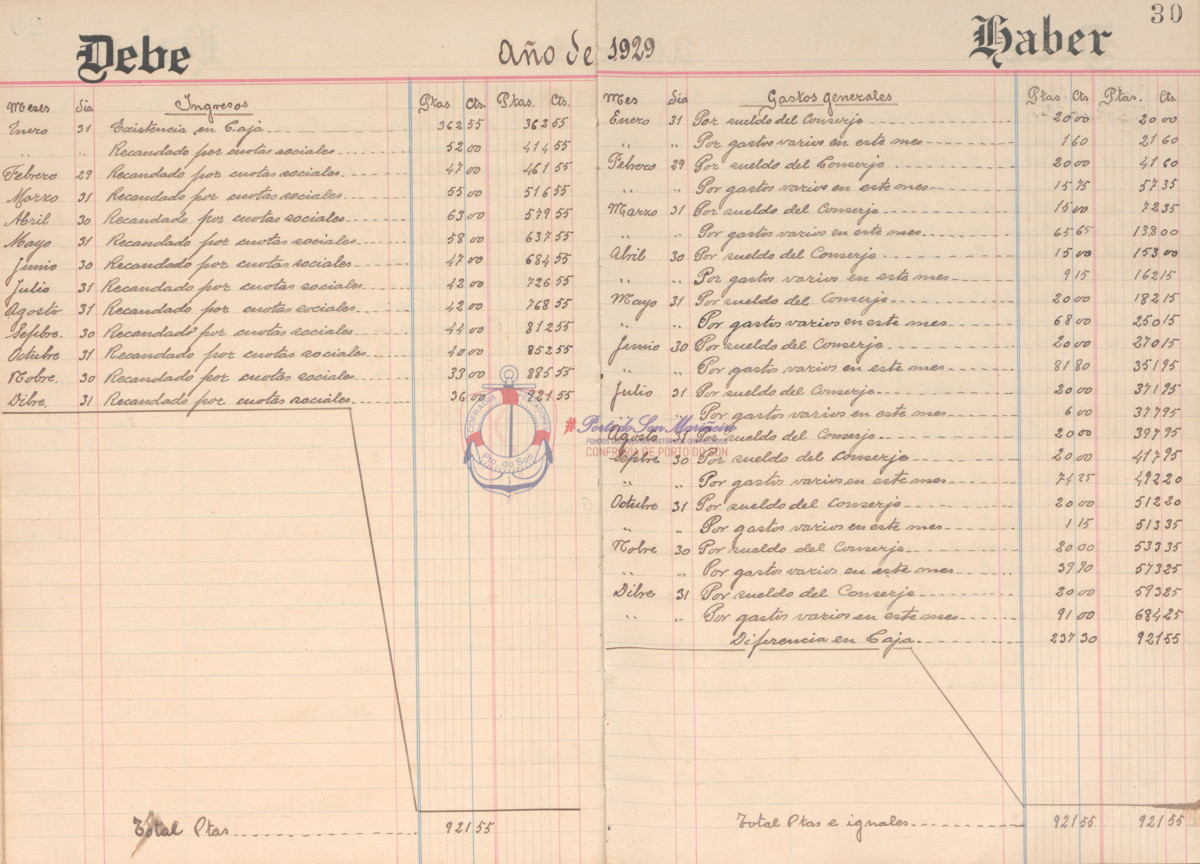 30
Debe Año de 1929 Haber
Meses Dia Ingresos Ptas Cts. Ptas. Cts.
Enero 31 Existencia en Caja 362 55 362 55
" " Recaudado por cuotas sociales 52 00 414 55
Febrero 29 Recaudado por cuotas sociales 47 00 461 55
Marzo 31 Recaudado por cuotas sociales 55 00 516 55
Abril 30 Recaudado por cuotas sociales 63 00 579 55
Mayo 31 Recaudado por cuotas sociales 58 00 637 55
Junio 30 Recaudado por cuotas sociales 47 00 684 55
Julio 31 Recaudado por cuotas sociales 42 00 726 55
Agosto 31 Recaudado por cuotas sociales 42 00 768 55
Sepbre. 30 Recaudado por cuotas sociales 44 00 812 55
Octubre 31 Recaudado por cuotas sociales 40 00 852 55
Nobre. 30 Recaudado por cuotas sociales 33 00 885 55
Dibre. 31 Recaudado por cuotas sociales 36 00 921 55
Total Ptas 921 55
Mes Dia Gastos generales Ptas Cts Ptas. Cts.
Enero 31 Por sueldo del Conserje 20 00 20 00
" " Por gastos varios en este mes 1 60 21 60
Febrero 29 Por sueldo del Conserje 20 00 41 60
" " Por gastos varios en este mes 15 75 57 35
Marzo 31 Por sueldo del Conserje 15 00 72 35
" " Por gastos varios en este mes 65 65 138 00
Abril 30 Por sueldo del Conserje 15 00 153 00
" " Por gastos varios en este mes 9 15 162 15
Mayo 31 Por sueldo del Conserje 20 00 182 15
" " Por gastos varios en este mes 68 00 250 15
Junio 30 Por sueldo del Conserje 20 00 270 15
" " Por gastos varios en este mes 81 80 351 95
Julio 31 Por sueldo del Conserje 20 00 371 95
" " Por gastos varios en este mes 6 00 377 95
Agosto 31 Por sueldo del Conserje 20 00 397 95
Sepbre 30 Por sueldo del Conserje 20 00 417 95
" " Por gastos varios en este mes 74 25 492 20
Octubre 31 Por sueldo del Conserje 20 00 512 20
" " Por gastos varios en este mes 1 15 513 35
Nobre 30 Por sueldo del Conserje 20 00 533 35
" " Por gastos varios en este mes 39 90 573 25
Dibre 31 Por sueldo del Conserje 20 00 593 25
" " Por gastos varios en este mes 91 00 684 25
Diferencia en Caja 237 30 921 55
Total Ptas e iguales 921 55 921 55
Pto. do Son
#Porto do Son Mariñeiro
CONFRARÍA DE PORTO DO SON